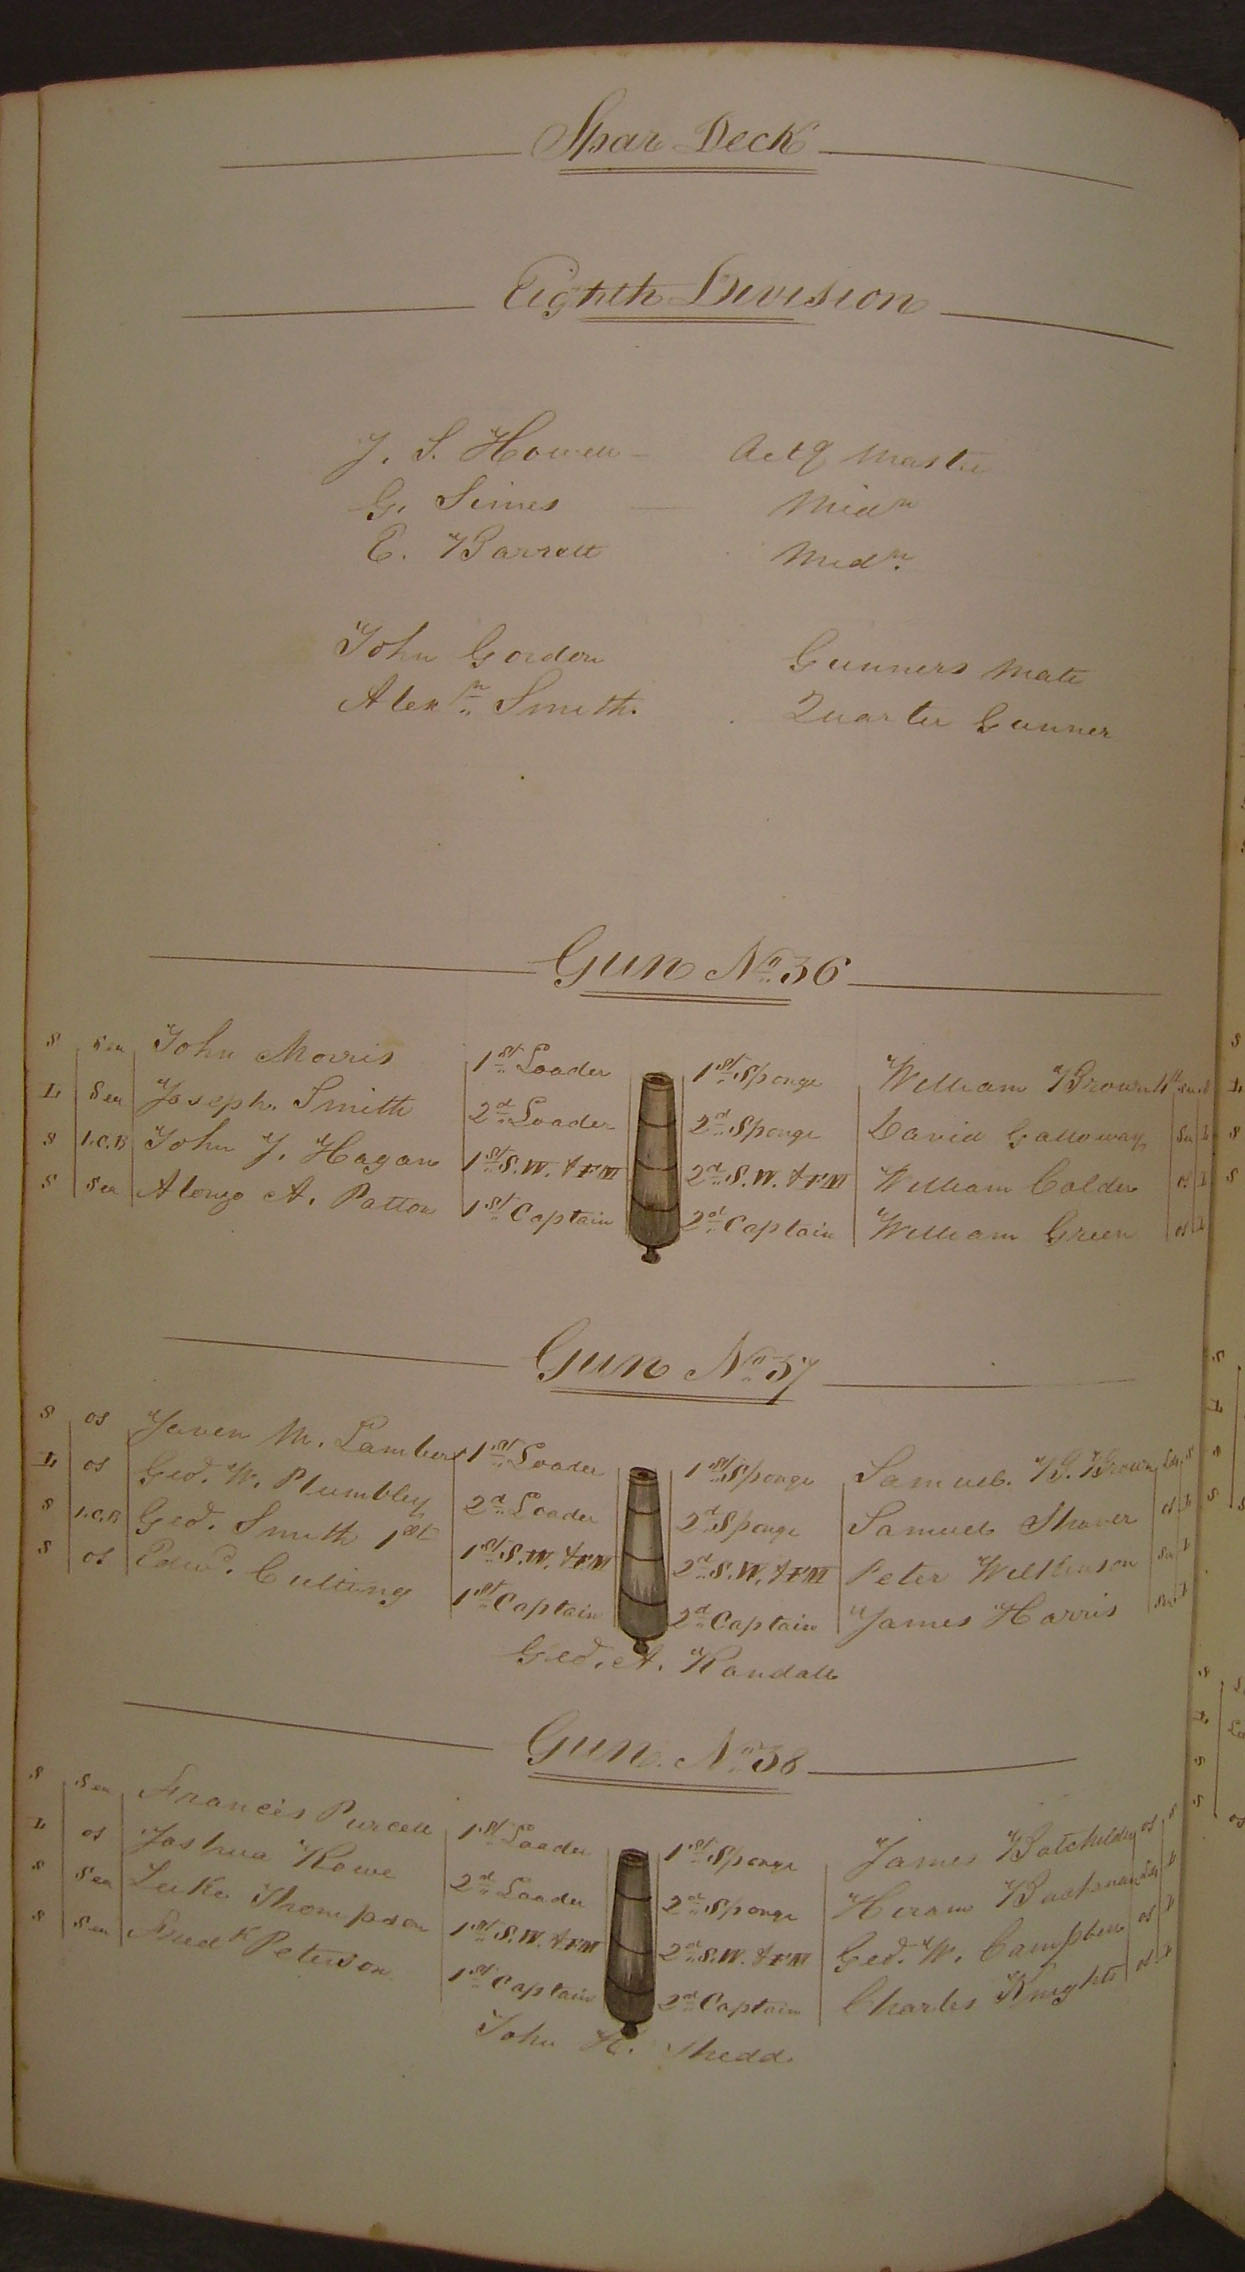 Spar Deck
Eighth Division
J. S. Howell Actg Master
G. Simes Midn
E. Barrett Midn
John Gordon Gunners Mate
Alexr Smith Quarter Gunner
Gun No 36
S Sea John Morris 1st Loader 1st Sponge William Brown 1st
L Sea Joseph Smith 2d Loader 2d Sponge David Galloway Sea L
S 1.C.B John J. Hagan 1st S.W. & F.M 2d S.W. & F.M William Calder os L
S Sea Alonzo A. Patton 1st Captain 2d Captain William Green os L
Gun No 37
S os M. Lambert 1st Loader 1st Sponge Samuel B. Brown S
L os Geo. W. Plumbley 2d Loader 2d Sponge Samuel Shaver os L
S 1.C.B Geo. Smith 1st 1st S.W. & F.M 2d S.W. & F.M Peter Wilkinson Sea L
S os Edwd. Cutting 1st Captain 2d Captain James Harris Sea L
Geo. A. Randall
Gun No 38
S Sea Francis Purcell 1st Loader 1st Sponge James Batchelder os S
L os Joshua Rowe 2d Loader 2d Sponge Hiram Buchanan L
S Sea Luke Thompson 1st S.W. & F.M 2d S.W. & F.M Geo. W. Campbell os L
S Sea Fredk Peterson 1st Captain 2d Captain Charles Knights os L
John H. Shedd